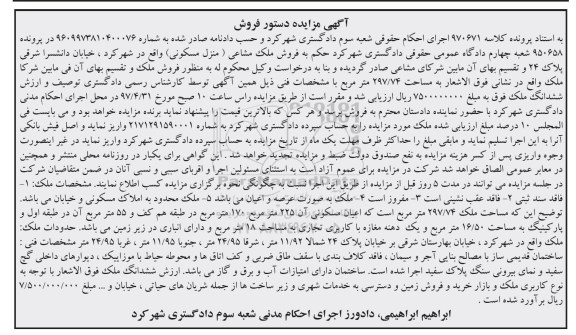 آگهی مزایده دستور فروش
به استناد پرونده کلاسه ۹۷۰۶۷۱ اجرای احکام حقوقی شعبه سوم دادگستری شهرکرد و حسب دادنامه صادر شده به شماره ۹۶۰۹۹۷۳۸۱۰۴۰۰۰۷۶ در پرونده
۹۵۰۶۵۸ شعبه چهارم دادگاه عمومی حقوقی دادگستری شهرکرد حکم به فروش ملک مشاعی ( منزل مسکونی) واقع در شهرکرد ، خیابان دانشسرا شرقی
پلاک ۲۴ و تقسیم بهای آن مابین شرکای مشاعی صادر گردیده و بنا به درخواست وکیل محکوم له به منظور فروش ملک و تقسیم بهای آن فی مابین شرکا
ملک واقع در نشانی فوق الاشعار به مساحت ۲۹۷/۷۴ متر مربع با مشخصات فنی ذیل همین آگهی توسط کارشناس رسمی دادگستری توصیف و ارزش
ششدانگ ملک فوق به مبلغ ۷۵۰۰۰۰۰۰۰۰ ریال ارزیابی شد و مقرر است از طریق مزایده راس ساعت ۱۰ صبح مورخ ۹۷/۴/۳۱ در محل اجرای احکام مدنی
دادگستری شهرکرد با حضور نماینده دادستان محترم به فروش برسد و هر کس که بالاترین قیمت را پیشنهاد نماید برنده مزایده خواهد بود و می بایست فی
المجلس ۱۰ درصد مبلغ ارزیابی شده ملک مورد مزایده را به حساب سپرده دادگستری شهرکرد به شماره ۲۱۷۱۲۹۱۵۹۰۰۰۱ واریز نماید و اصل فیش بانکی
آنرا به این اجرا تسلیم نماید و مابقی مبلغ را حداکثر ظرف مهلت یک ماه از تاریخ مزایده به حساب سپرده دادگستری شهرکرد واریز نماید در غیر اینصورت
وجوه واریزی پس از کسر هزینه مزایده به نفع صندوق دولت ضبط و مزایده تجدید خواهد شد . این گواهی برای یکبار در روزنامه محلی منتشر و همچنین
در معابر عمومی الصاق خواهد شد شرکت در مزایده برای عموم آزاد است به استثنای مسئولین اجرا و اقربای سببی و نسبی آنان در ضمن متقاضیان شرکت
در جلسه مزایده می توانند در مدت ۵ روز قبل از مزایده از طریق این اجرا نسبت به چگونگی نحوه برگزاری مزایده کسب اطلاع نمایند. مشخصات ملک: ۱-
فاقد سند ثبتی ۲- فاقد عقب نشینی است ۳- مفروز است ۴- ملک به صورت عرصه و اعیان می باشد ۵- ملک محدود به املاک مسکونی و خیابان می باشد.
توضیح این که مساحت ملک ۲۹۷/۷۴ متر مربع است که اعیان مسکونی آن ۲۲۵ متر مربع ۱۷۰ متر مربع در طبقه هم کف و ۵۵ متر مربع آن در طبقه اول و
پارکینگ به مساحت ۱۶/۵۰ متر مربع و یک دهنه مغازه با کاربری تجاری به مساحت ۱۸ متر مربع و دارای انباری در زیر زمین می باشد. حدودات ملک:
ملک واقع در شهرکرد ، خیابان بهارستان شرقی بر خیابان پلاک ۲۴ شمالا ۱۱/۹۲ متر ، شرقا ۲۴/۹۵ متر ، جنوبا ۱۱/۹۵ متر ، غربا ۲۴/۹۵ متر مشخصات فنی :
ساختمان قدیمی ساز با مصالح بنایی آجر و سیمان ، فاقد کلاف بندی با سقف طاق ضربی و کف اتاق ها و محوطه حیاط با موزاییک ، دیوارهای داخلی گچ
سفید و نمای بیرونی سنگ پلاک سفید اجرا شده است. ساختمان دارای امتیازات آب و برق و گاز می باشد. ارزش ششدانگ ملک فوق الاشعار با توجه به
نوع کاربری ملک و بازار خرید و فروش زمین و دسترسی به خدمات شهری و زیر ساخت ها از جمله شریان های حیاتی ، خیابان و ... مبلغ ۷/۵۰۰/۰۰۰/۰۰۰
ریال برآورد شده است .
ابراهیم ابراهیمی، دادورز اجرای احکام مدنی شعبه سوم دادگستری شهرکرد